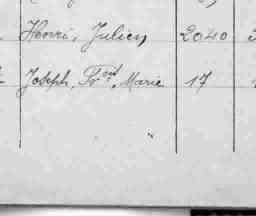 Henri, Julien, 2040
Joseph, Fr.ois, Marie 17
"